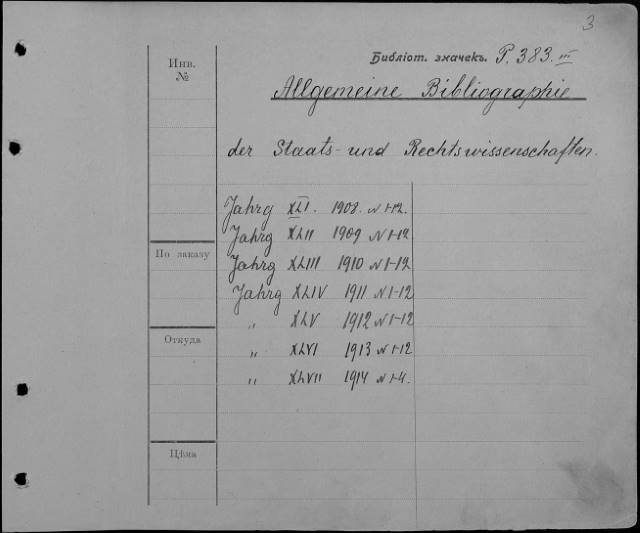 3
Библіот. значекъ. P. 383. III
Инв.
№
Allgemeine Bibliographie
der Staats- und Rechtswissenschaften.
Jahrg XLI. 1908. N 1-12.
Jahrg XLII 1909 N 1-12
По заказу
Jahrg XLIII 1910 N 1-12
Jahrg XLIV 1911 N 1-12
„ XLV 1912 N 1-12
Откуда
„ XLVI 1913 N 1-12
„ XLVII 1914 N 1-4.
Цѣна